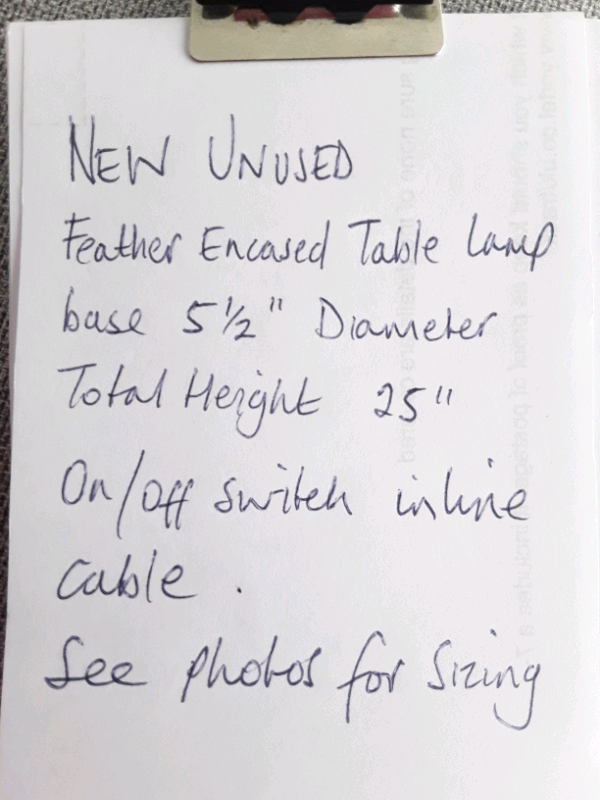 NEW UNUSED
Feather Encased Table Lamp
base 5½" Diameter
Total Height 25"
On/off switch inline
cable .
See photos for Sizing